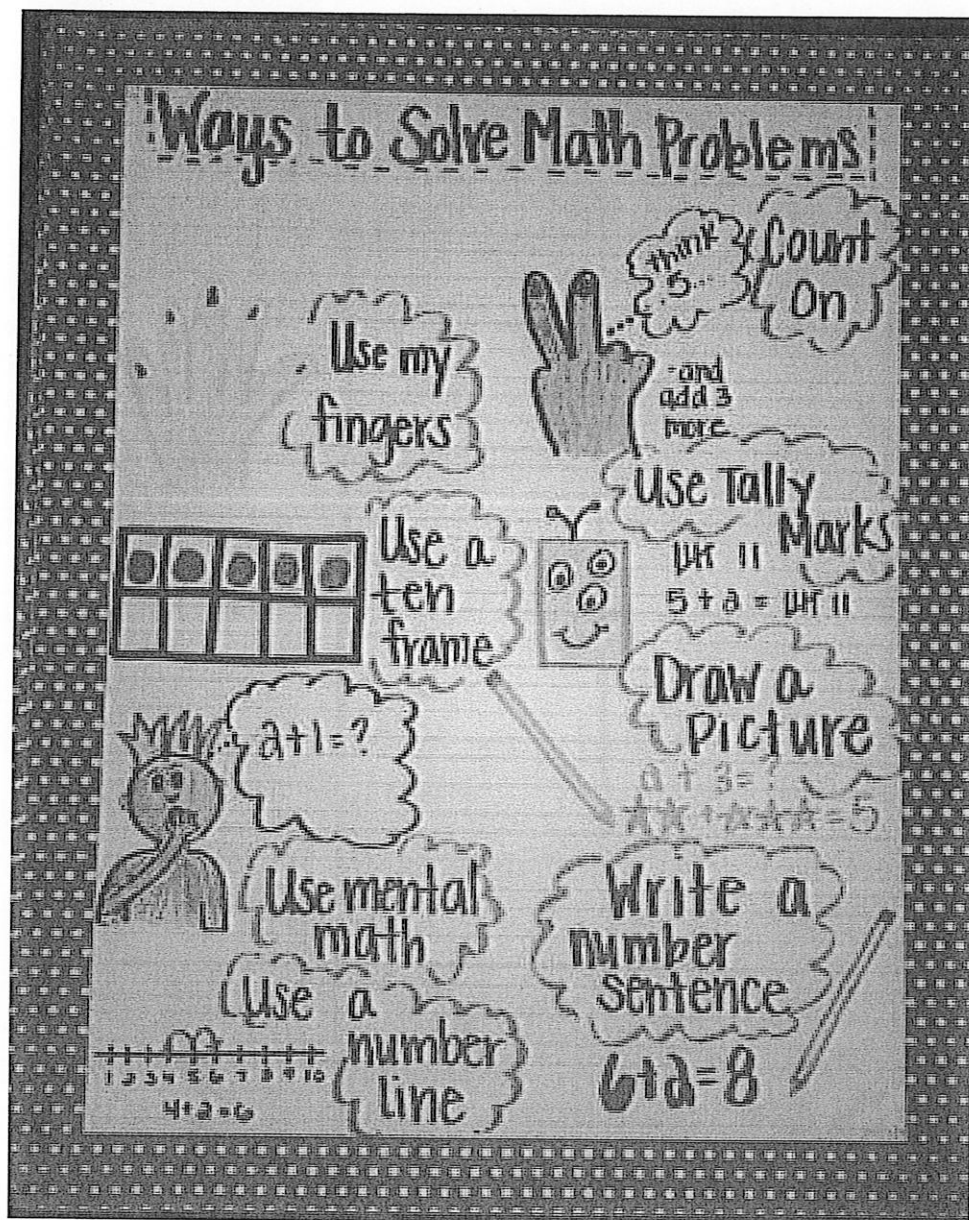 Ways to Solve Math Problems
Use my
fingers
Think
5...
Count
On
-and
add 3
more
Use a
ten
frame
Use Tally
Marks
5 + 2 =
Draw a
Picture
2 + 3 = ?
☆☆+☆☆☆=5
2+1=?
Use mental
math
Write a
number
sentence
6+2=8
Use a
number
line
1 2 3 4 5 6 7 8 9 10
4+2=6